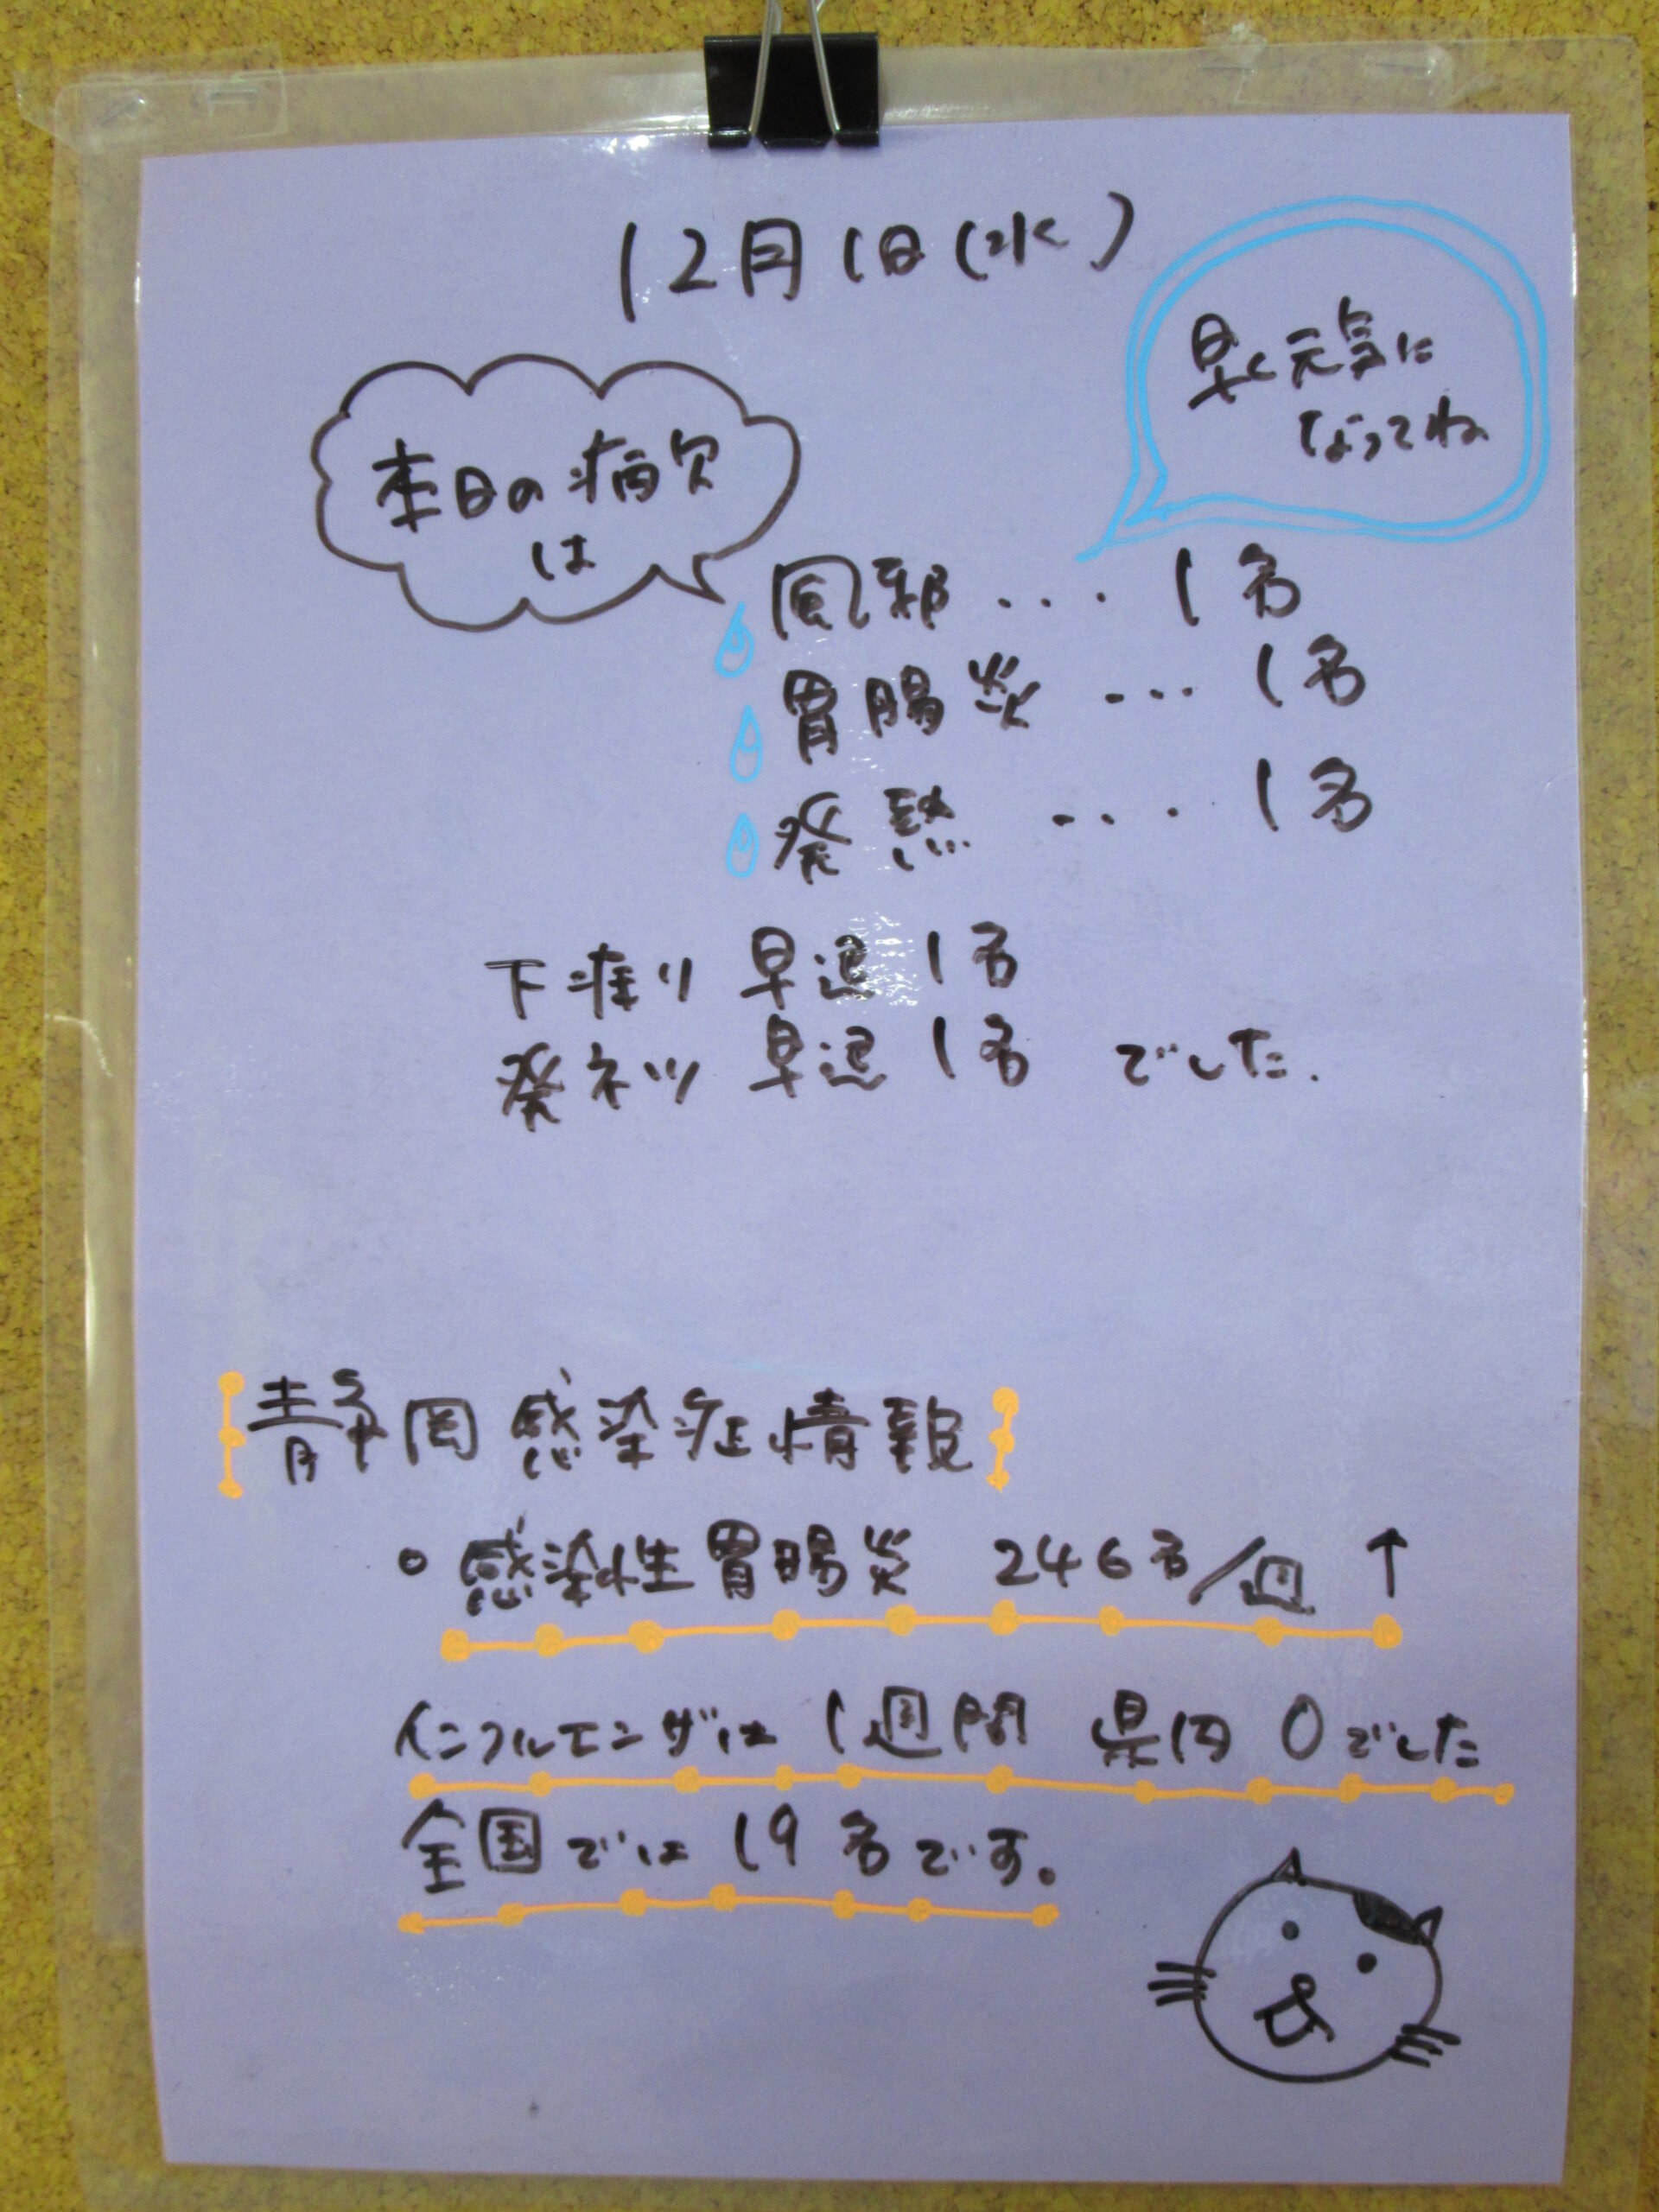 12月1日(水)
早く元気に
なってね
本日の病欠
は
風邪 ... 1名
胃腸炎 ... 1名
発熱 .... 1名
下痢り 早退 1名
発ネツ 早退 1名 でした.
静岡 感染症情報
○ 感染性胃腸炎 246名/週 ↑
インフルエンザは 1週間 県内 0でした
全国では 19名です。